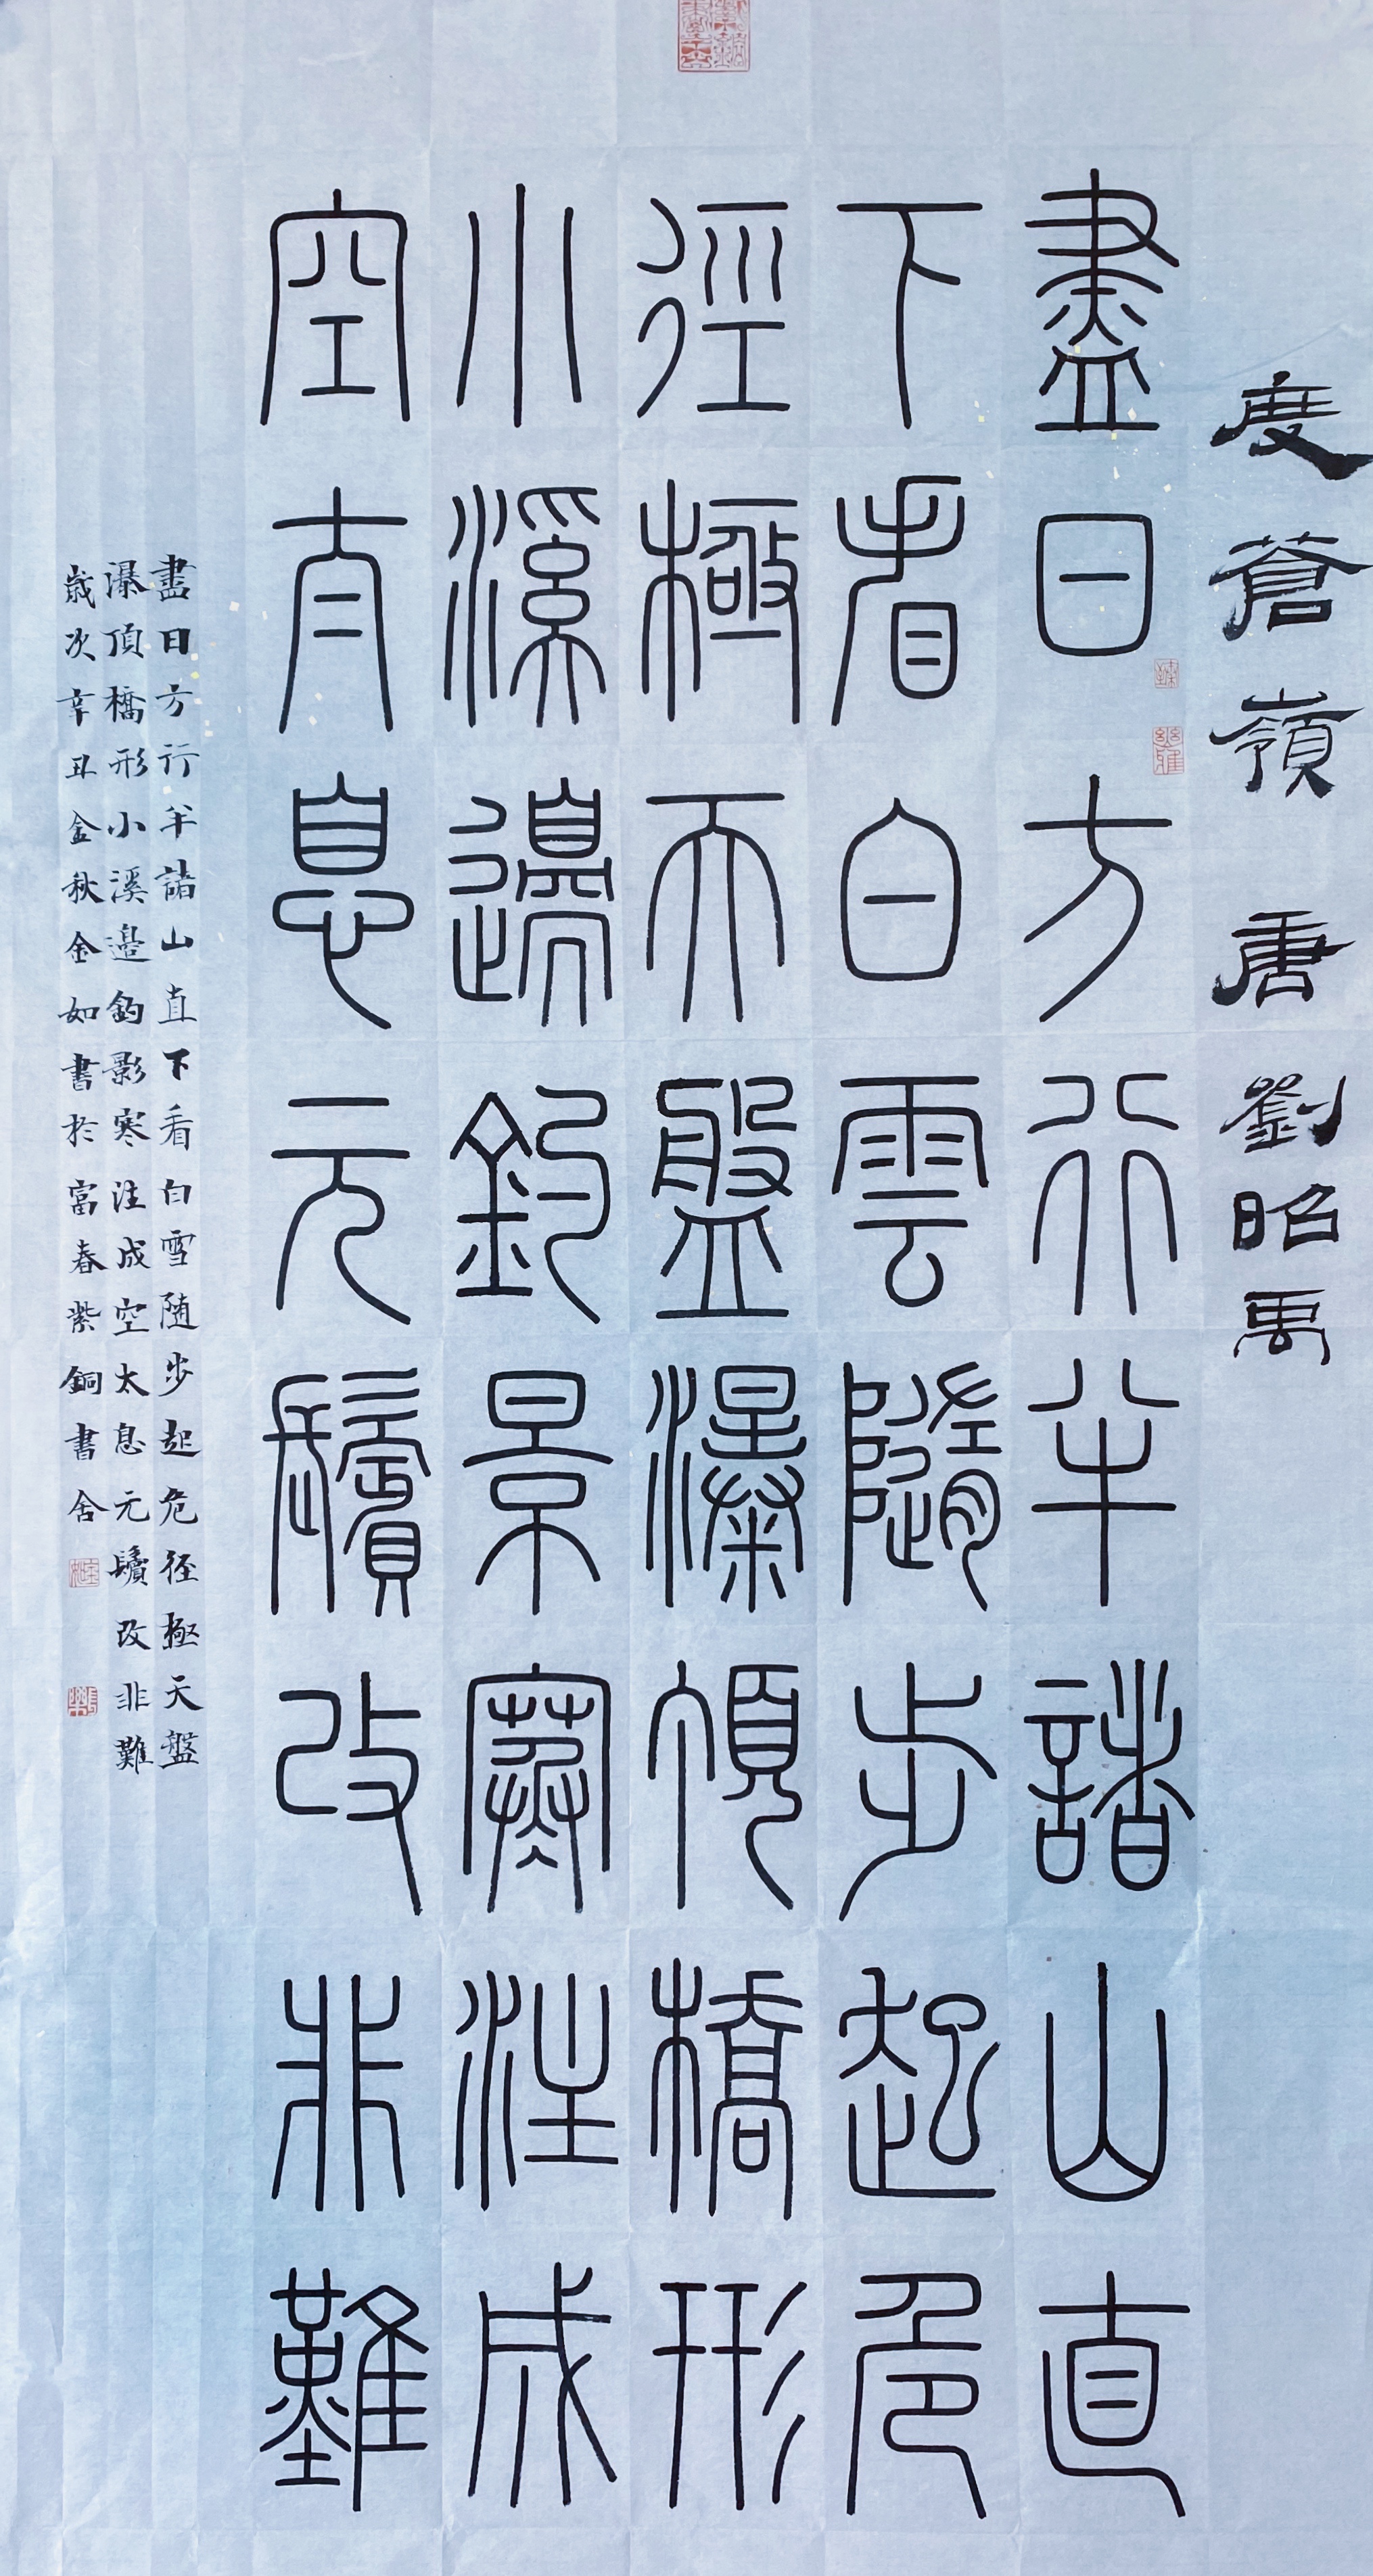 度蒼嶺 唐 劉昭禹
盡日方行半諸山直
下看白雲隨步起危
徑極天盤瀑頂橋形
小溪邊釣景寒注成
空太息元鬢改非難
盡日方行半諸山直下看白雪随步起危径極天盤
瀑頂橋形小溪邉釣影寒注成空太息元鬢改非難
歲次辛丑金秋金如書於富春紫銅書舍